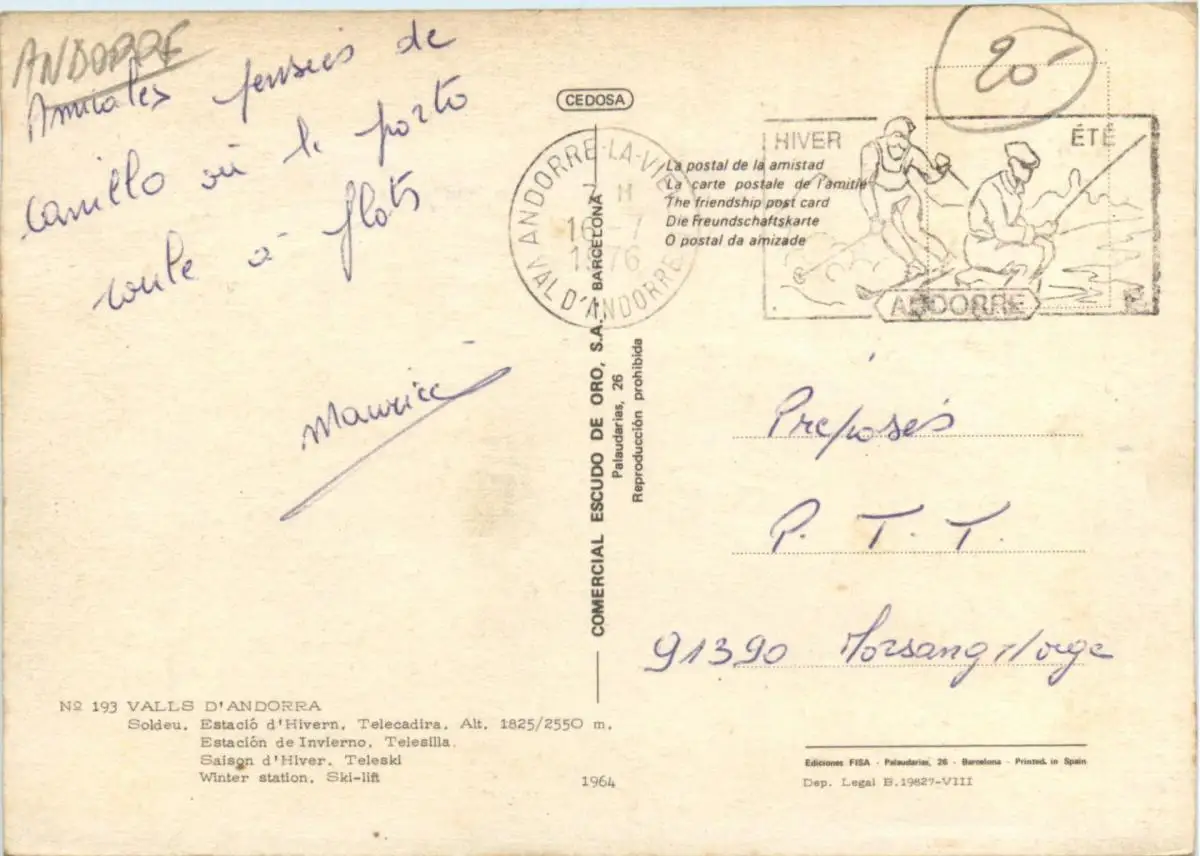 ANDORRE
Amicales pensées de
Canillo où le porto
coule à flots
Maurice
CEDOSA
ANDORRE-LA-VIEILLE
7 H
16 -7
1976
VAL D'ANDORRE
HIVER
ÉTÉ
ANDORRE
20
La postal de la amistad
La carte postale de l'amitié
The friendship post card
Die Freundschaftskarte
O postal da amizade
COMERCIAL ESCUDO DE ORO, S.A. BARCELONA
Palaudarias, 26
Reproducción prohibida
Préposés
P. T. T.
91390 Morsang s/orge
Nº 193 VALLS D'ANDORRA
Soldeu. Estació d'Hivern. Telecadira. Alt. 1825/2550 m.
Estación de Invierno. Telesilla.
Saison d'Hiver. Teleski
Winter station. Ski-lift
1964
Ediciones FISA - Palaudarias, 26 - Barcelona - Printed. in Spain
Dep. Legal B.19827-VIII